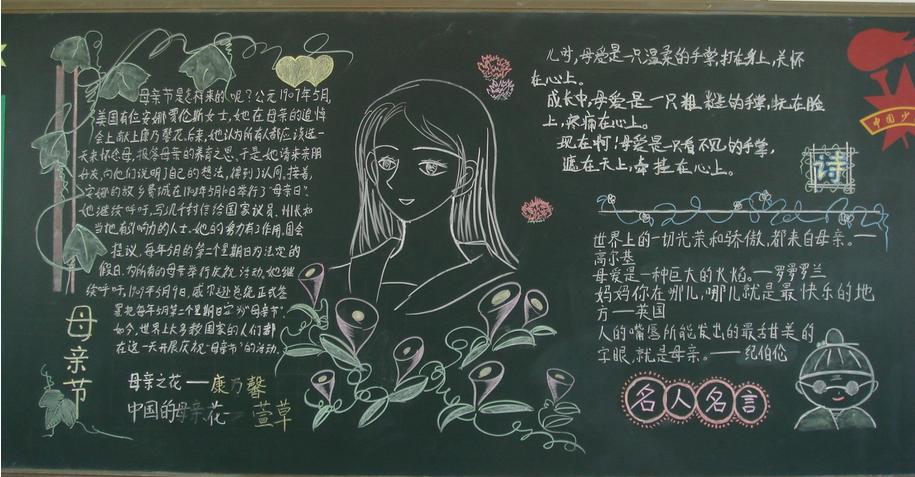 母亲节是怎样来的呢?公元1907年5月,
美国有位安娜贾伦斯女士,她在母亲的追悼
会上献上康乃馨花.后来,她认为所有人都应该选一
天来怀念母,报答母亲的养育之恩.于是她请来亲朋
好友,向他们说明了自己的想法,得到了认同.接着,
安娜的故乡费城在1908年5月10日举行了"母亲日".
她继续呼吁,写几千封信给国家议员、州长和
当地有影响力的人士.她的努力有了作用.国会
提议,每年5月的第二个星期日为法定的
假日.为所有的母亲举行庆祝活动.她继
续呼吁,1914年5月9日,威尔逊总统正式签
署把每年5月第二个星期日定为"母亲节".
如今,世界上大多数国家的人们都
在这一天开展庆祝"母亲节"的活动.
母亲节
母亲之花——康乃馨
中国的母亲花—萱草
儿时,母爱是一只温柔的手掌,打在身上,关怀
在心上。
成长中,母爱是一只粗糙的手掌,抚在脸
上,疼痛在心上。
现在啊!母爱是一只看不见的手掌,
遮在天上,牵挂在心上。
诗
中国少
世界上的一切光荣和骄傲,都来自母亲。—
高尔基
母爱是一种巨大的火焰。—罗曼罗兰
妈妈你在哪儿,哪儿就是最快乐的地
方——英国
人的嘴唇所能发出的最古甜美的
字眼,就是母亲。——纪伯伦
名人名言